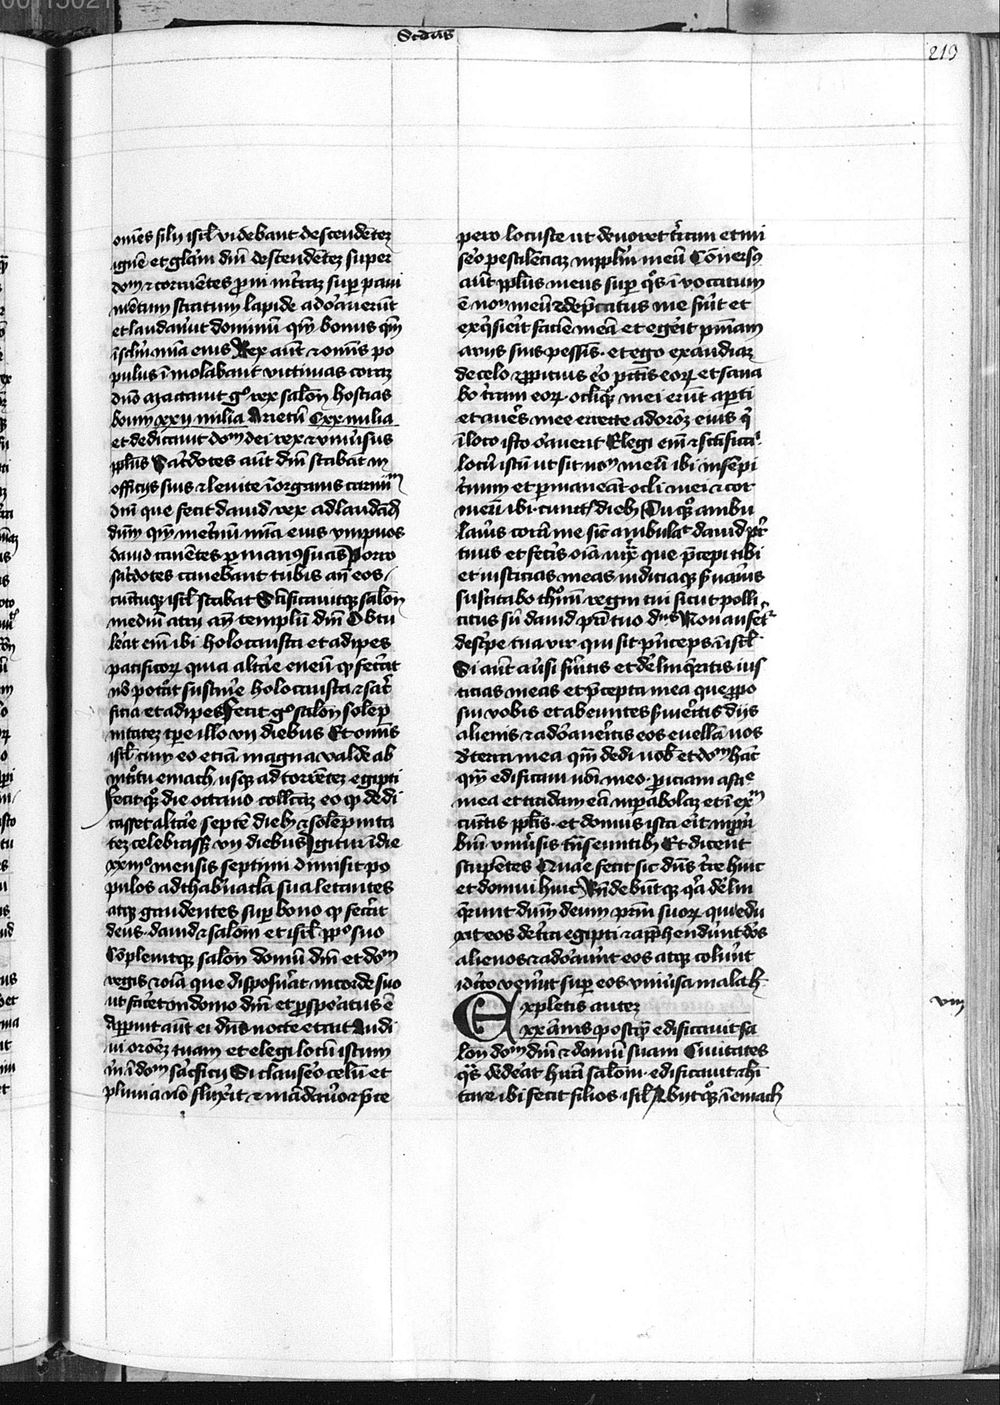 Scds̄
219
om̄es filij isrl̄ videbant descendētez
ignē et glām dn̄i descendētez super
dom̄ ⁊ corruētes p̄ni in trāz sup̄ pavi
mētum stratum lapide adorauerūt
et laudauūt dominū qm̄ bonus qm̄
ī sclm̄ mīa eius Rex aūt ⁊ omīs po
pulus īmolabant victimas coraz
dn̄o mactauit gͦ rex salōn hostias
boum xxij milia Arietū Cxx milia
et dedicauit dom̄ dei rex ⁊ vniūsus
ppl̄us Sac̄dotes aūt dn̄i stabāt in
officijs suis ⁊ leuite ī organis carmīm
dn̄i que fecit dauid rex ad laudādū
dn̄m qm̄ in et̄nū mīa eius ympnos
dauid canētes p manꝰ suas Porro
sac̄dotes canebant tubis an̄ eos
cūctusqꝫ isrl̄ stabat Scīficauitqꝫ salōn
mediū atrij an̄ templū dn̄i Obtu
lerat em̄ ibi holocausta et adipes
pacificoꝝ quia altāe eneū qͦ fec̄at
nō pot̄at sustinē holocausta ⁊ sac̄
ficia et adipes Fecit gͦ salōn solep
nitatez tp̄e illo vij diebus Et omīs
isrl̄ cum eo ecc̄ia magna valde ab
introitu emach usqꝫ ad torrētez egipti
Fecitqꝫ die octauo collc̄az eo qͦ dedi
casset altāe septē diebꝫ ⁊ solepnita
tez celebrassꝫ vij diebus Igitur ī die
xxiijͦ mensis septimi dimisit po
pulos ad thab̄nacla sua letantes
atqꝫ gaudentes sup̄ bono qͦ fec̄at
deus dauid ⁊ salōni et isrl̄ pplͦo suo
Cōpleuitqꝫ salōn domū dn̄i et dom̄
regis ⁊ oīa que disposuāt in corde suo
ut facēt in domo dn̄i et p̄spe̓atus ē
Apparuit aūt ei dn̄s nocte et ait Audi
ui or̄onēz tuam et elegi locū istum
m̄ ī dom̄ sac̄ficij Si clausēo celū et
pluuia nō fluxīt ⁊ mādauēo ⁊ p̄ce
pero locuste ut deuoret t̓ram et mi
sēo pestilenciaz in ppl̄m meū Cōuersꝰ
aūt ppl̄us meus sup̄ qͦs īuocatum
ē nom̄ meū ⁊ dep̄catus me fuīt et
exq̄sieīt faciē meā et egēit pn̄iam
a vijs suis pessīs et ego exaudiaz
de celo ⁊ ppicius eō pctīs eoꝝ et sana
bo t̓ram eoꝝ ocliqꝫ mei erūt apti
et aures mee erecte ad or̄onēz eius qͥ
ī loco isto oāuerit Elegi em̄ ⁊ scīficaui
locū istū ut sit nom̄ meū ibi in sēpi
tnum et p̄maneāt ocli mei ⁊ cor
meū ibi cunct̄ diebꝫ Tu qͦꝫ si ambu
lauīs corā me sic̄ ambulat dauid pr̄
tuus et fecīs oīa iux̄ que p̄cepi tibi
et iusticias meas iudiciaqꝫ s̄uaūis
suscitabo thronū regni tui sicut polli
citus sū dauid pr̄i tuo dn̄s Non aufet̄r
de stirpe tua vir qui sit p̄nceps ī isrl̄
Si aūt aūsi fuītis et de̓linq̄ritis ius
ticias meas et p̄cepta mea que ppo
sui vobis et abeuntes s̄uieītis dijs
alienis ⁊ adoāueītis eos euellā vos
d̓ terra mea qm̄ dedi vobꝫ et dom̄ hāc
qm̄ edificaui nōi meo piciam a facͤ
mea et tradam eā in p̄abolaz et ī exm̄
cūctis pplīs et domus ista eīt in p̄uer
biū vniūsis tn̄seuntibꝫ Et dicent
stupētes Quāe fecit sic dn̄s t̓re huic
et domui huic Rn̄debūtqꝫ qͥa de̓lin
q̄runt dn̄m deum pr̄m suoꝝ qui edu
xit eos de t̓ra egipti ⁊ app̄hendūnt dōs
alienos ⁊ adoāunt eos atqꝫ colūnt
idc̄o venēt sup̄ eos vniūsa mala hꝫ
Expletis autez
xx annis postq̄ edificauit sa
lōn dom̄ dn̄i ⁊ domū suam Ciuitates
qͣs dedeāt huā salōni edificauit ⁊ hi
tare ibi fecit filios isrl̄ Abijtqͦꝫ ī emach
viij